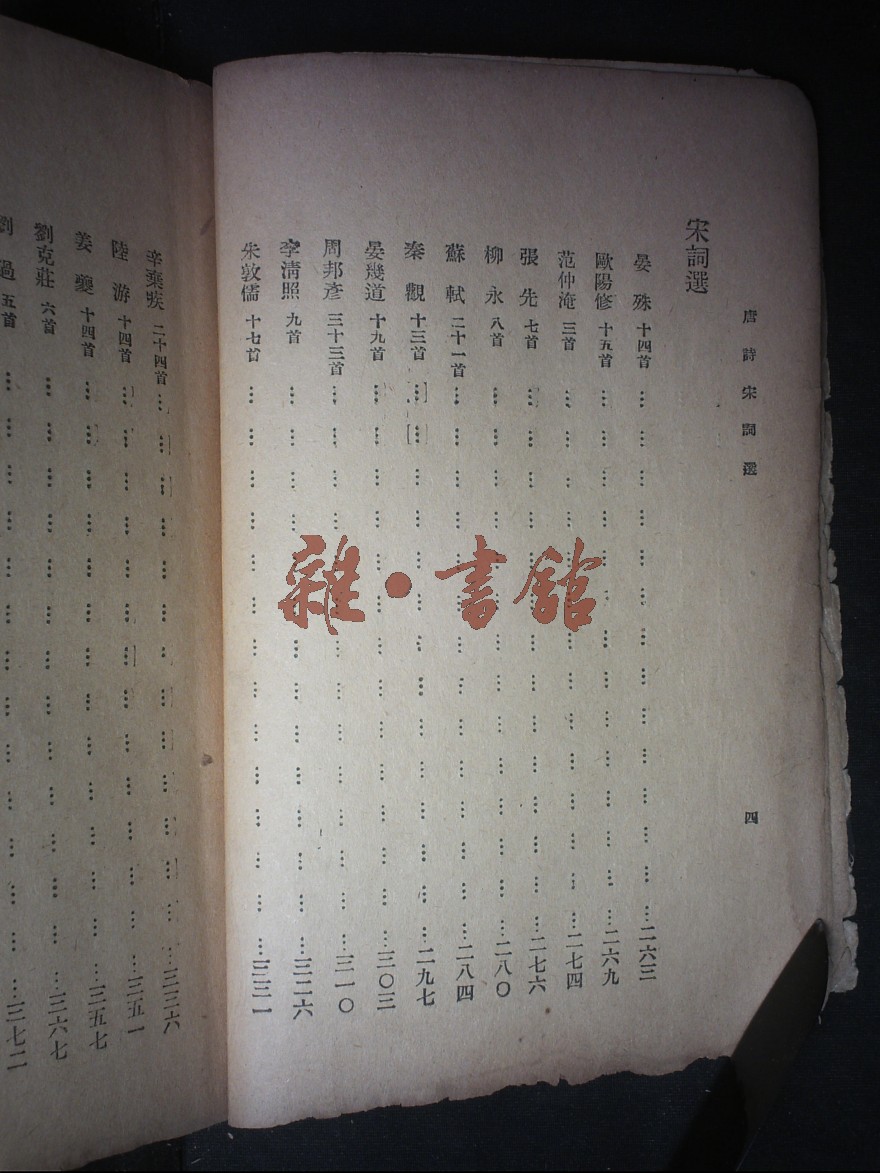 唐詩宋詞選
四
宋詞選
晏殊 十四首 …… 二六三
歐陽修 十五首 …… 二六九
范仲淹 三首 …… 二七四
張先 七首 …… 二七六
柳永 八首 …… 二八〇
蘇軾 二十一首 …… 二八四
秦觀 十三首 …… 二九七
晏幾道 十九首 …… 三〇三
周邦彥 三十三首 …… 三一〇
李清照 九首 …… 三二六
朱敦儒 十七首 …… 三三一
辛棄疾 二十四首 …… 三三六
陸游 十四首 …… 三五一
姜夔 十四首 …… 三五七
劉克莊 六首 …… 三六七
劉過 五首 …… 三七二
雜·書館